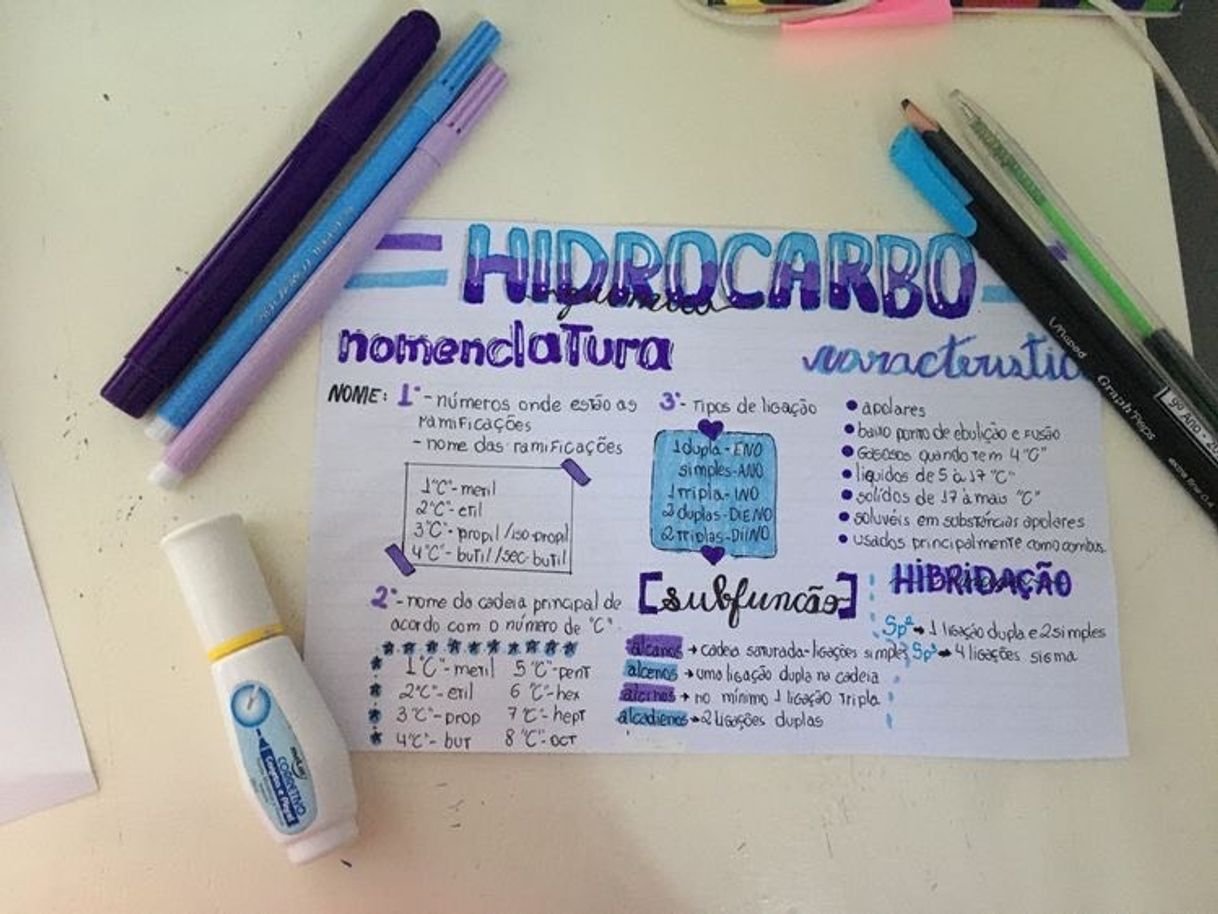 HIDROCARBO
química
nomenclatura
característic
NOME: 1°- números onde estão as
ramificações
- nome das ramificações
1"C"- metil
2"C"- etil
3"C"- propil/iso-propil
4"C"- butil/sec-butil
2°- nome da cadeia principal de
acordo com o número de "C".
1"C"- metil 5"C"- pent
2"C"- etil 6"C"- hex
3"C"- prop 7"C"- hept
4"C"- but 8"C"- oct
3°- Tipos de ligação
1 dupla - ENO
simples - ANO
1 tripla - INO
2 duplas - DIENO
2 triplas - DIINO
[subfunção]
alcanos → cadeia saturada-ligações simples
alcenos → uma ligação dupla na cadeia
alcinos → no mínimo 1 ligação tripla
alcadienos → 2 ligações duplas
• apolares
• baixo ponto de ebulição e fusão
• Gasosos quando tem 4 "C"
• líquidos de 5 à 17 "C"
• solídos de 17 à mais "C"
• soluvéis em substâncias apolares
• usados principalmente como combus.
HIBRIDAÇÃO
Sp² → 1 ligação dupla e 2 simples
Sp³ → 4 ligações sigma
CORRETIVO
Graph'Peps
9º Ano